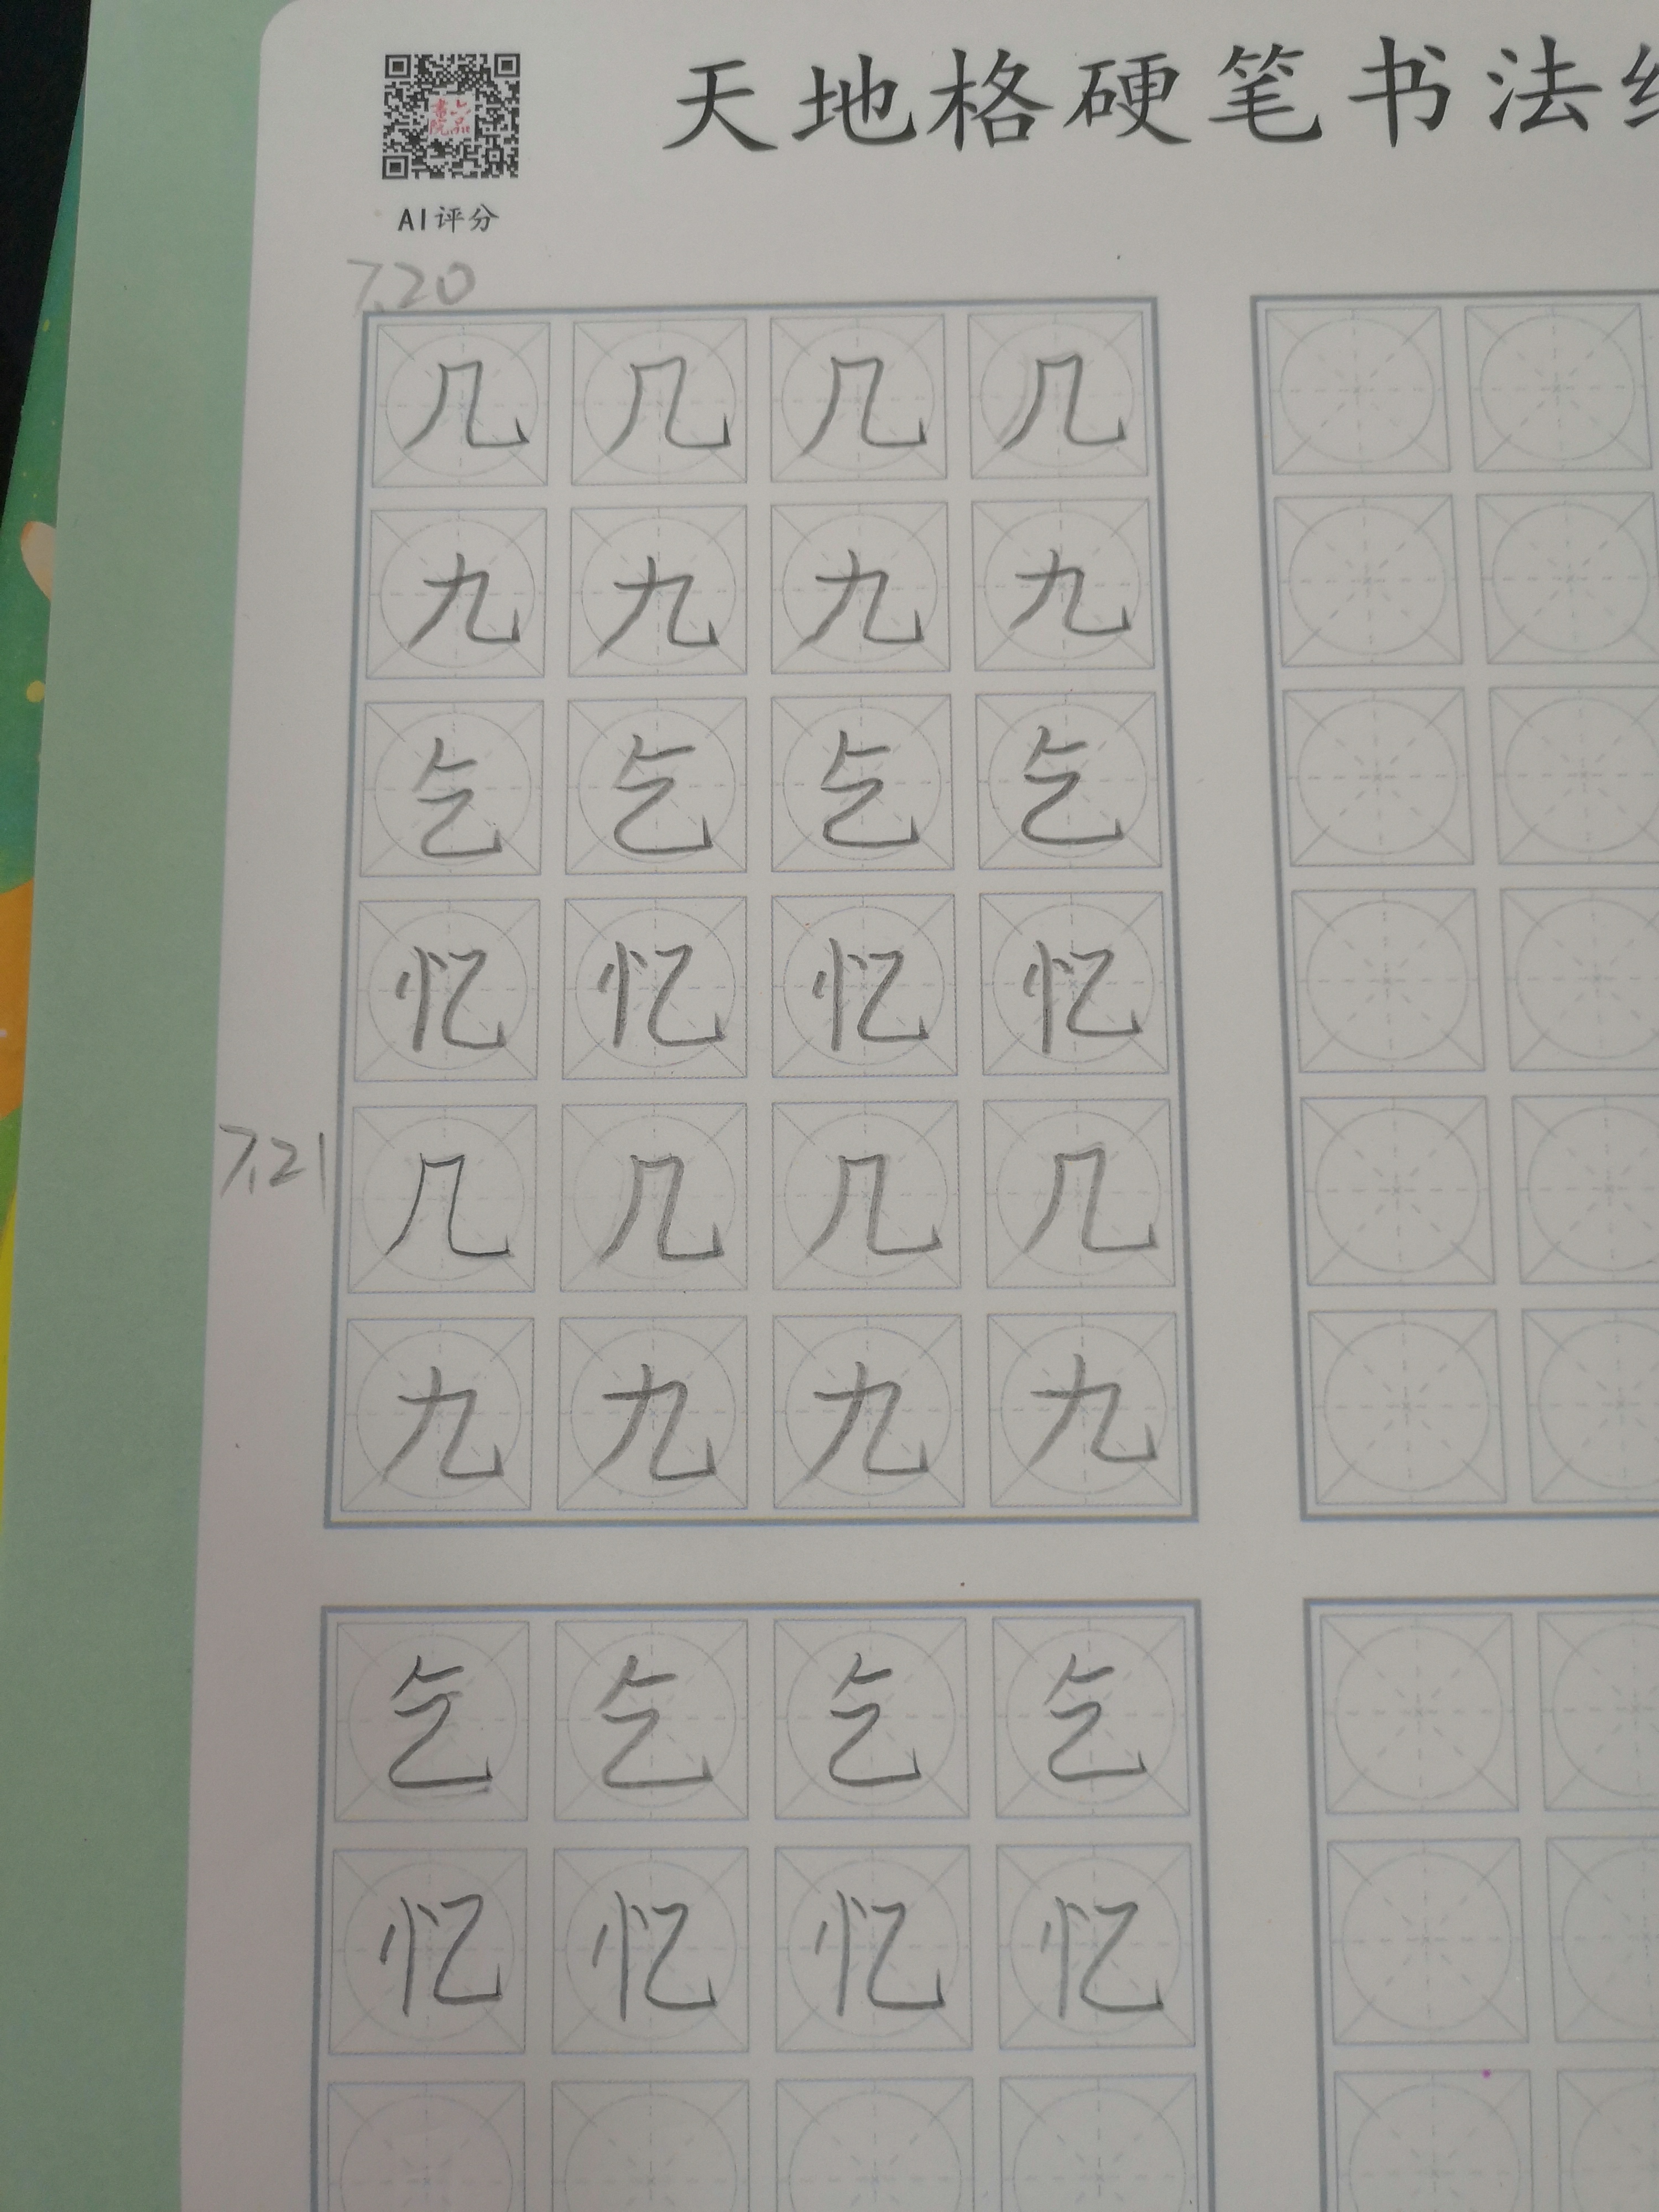 天地格硬笔书法
六品書院
AI评分
7.20
几几几几
九九九九
乞乞乞乞
忆忆忆忆
7.21
几几几几
九九九九
乞乞乞乞
忆忆忆忆